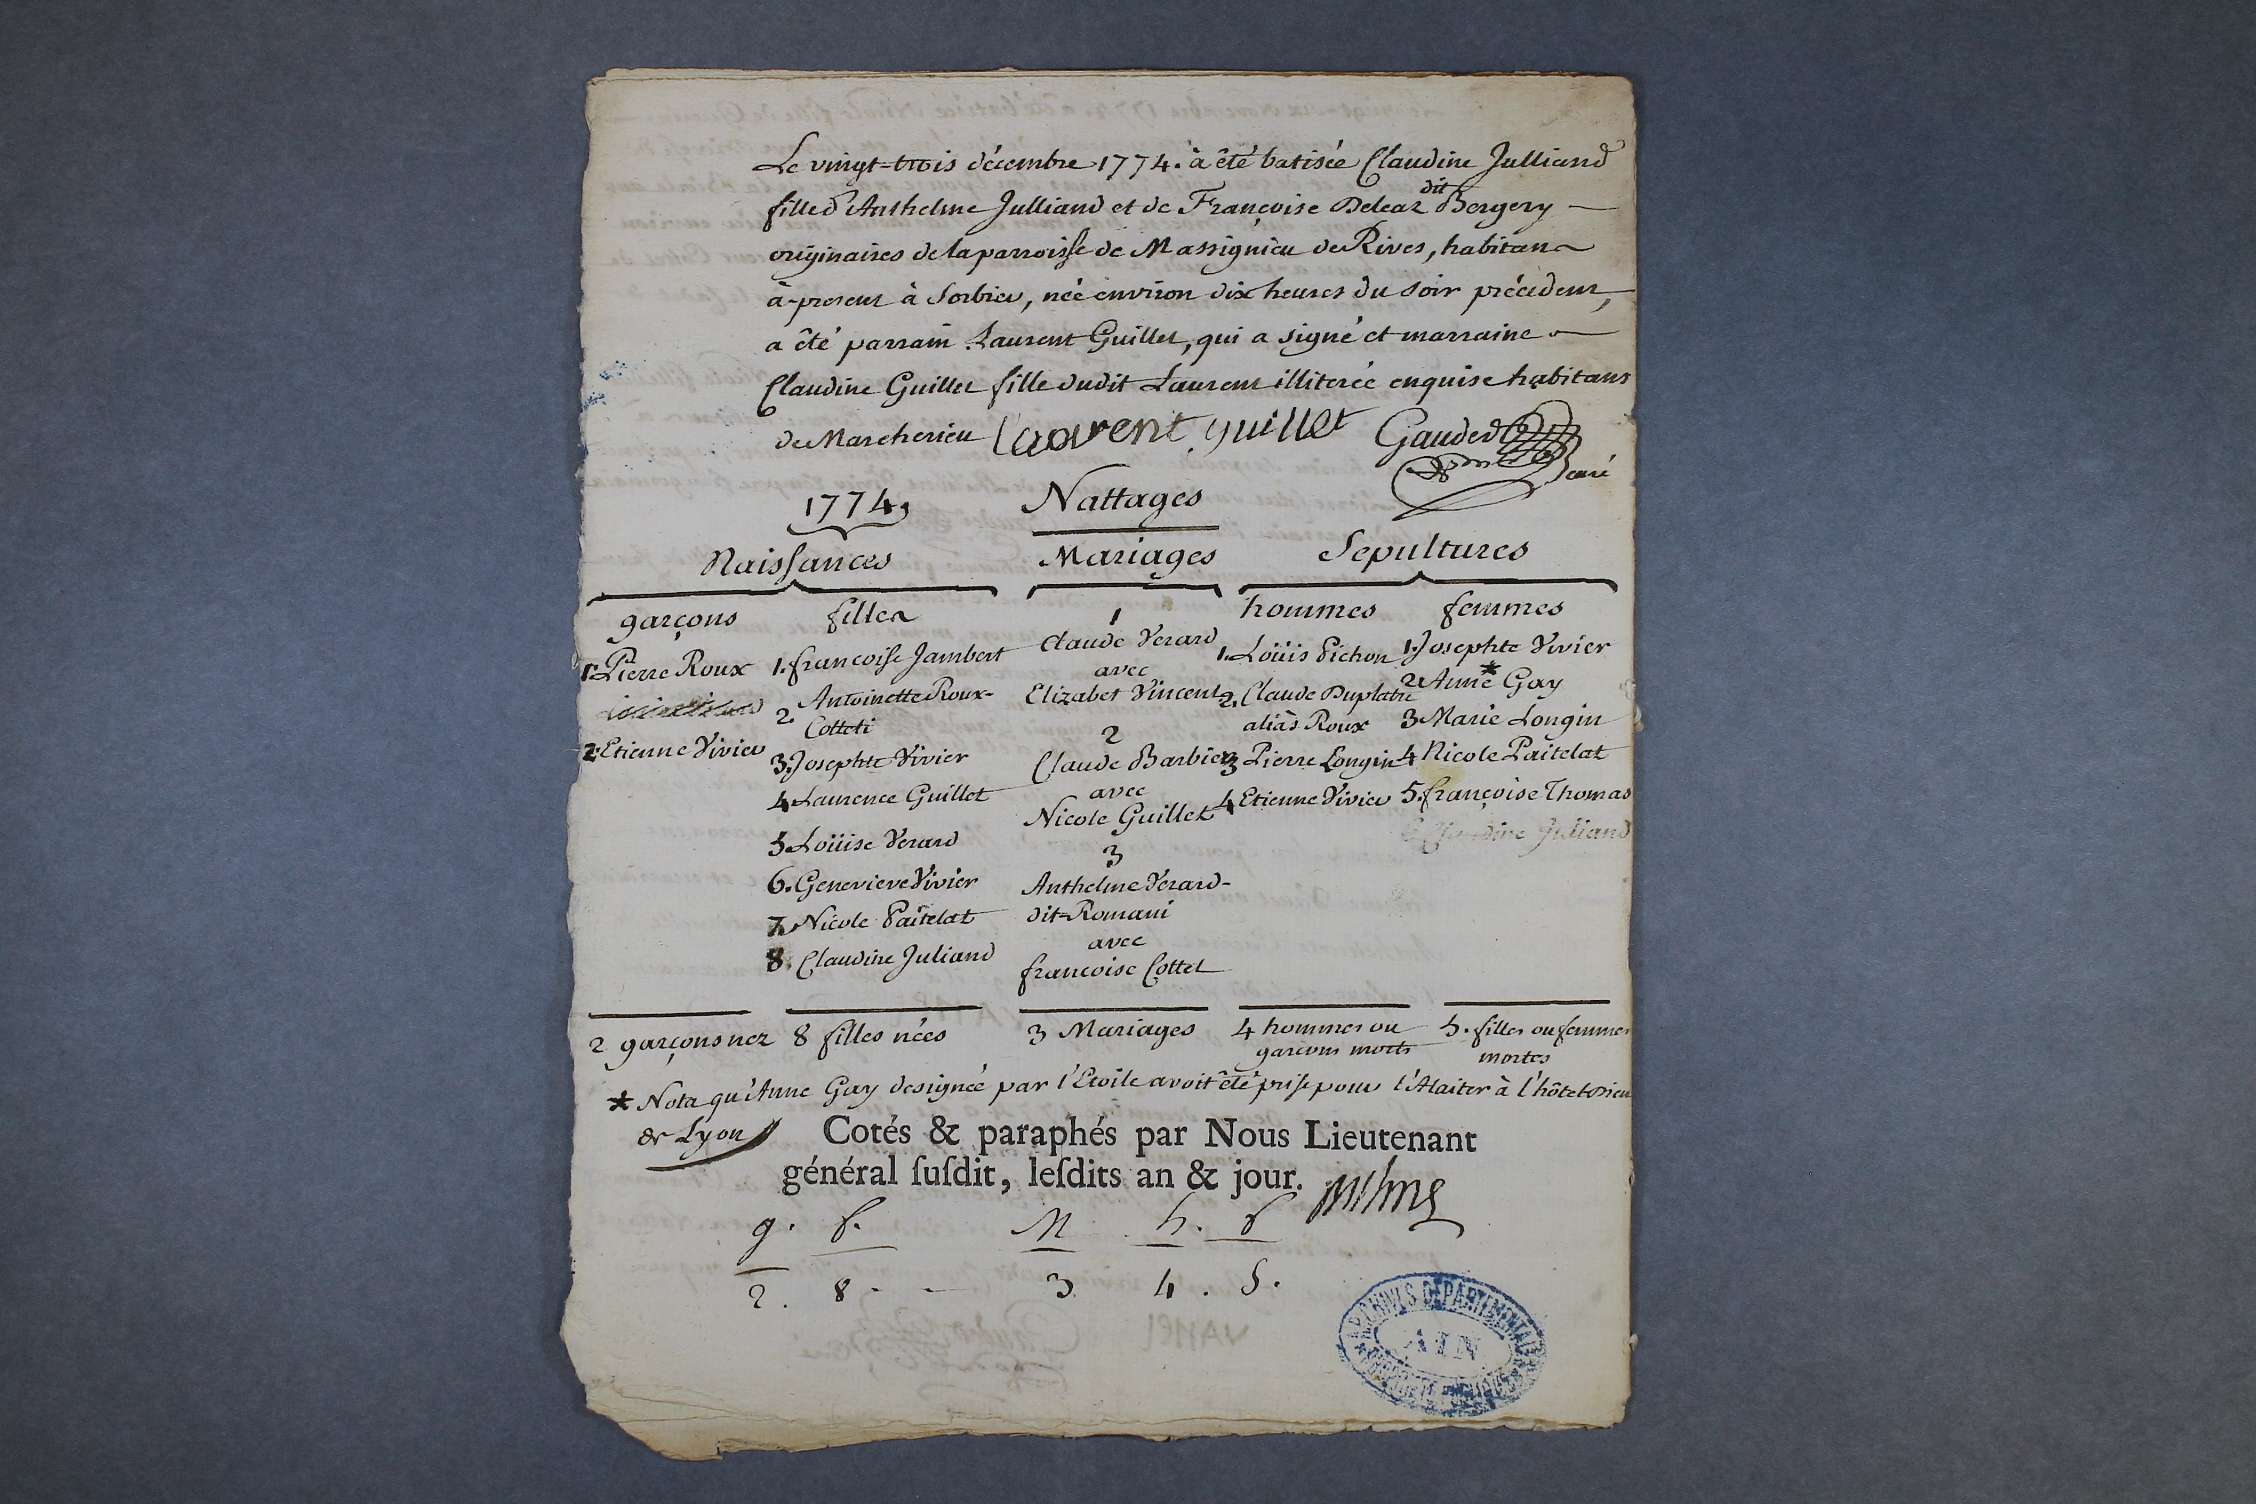 Le vingt-trois décembre 1774. à été batisée Claudine Julliand
fille d'Anthelme Julliand et de Françoise Deleaz dit Bergery
originaires de la parroisse de Massignieu de Rives, habitans
à-present à Sorbier, née environ dix heures du soir précédent,
a été parrain Laurent Guillet, qui a signé et marraine
Claudine Guillet fille dudit Laurent illiterée enquise habitans
de Marcherieu laovrent guillet Gauded
curé
1774, Nattages
Naissances Mariages Sepultures
garçons filles hommes femmes
1. Pierre Roux
2. Etienne Vivier
1. francoise Jambert
2. Antoinette Roux-
Cotteti
3. Josephte Vivier
4. Laurence Guillet
5. Loüise Verard
6. Genevieve Vivier
7. Nicole Paitelat
8. Claudine Juliand
1
Claude Verard
avec
Elizabet Vincent
2
Claude Barbier
avec
Nicole Guillet
3
Anthelme Verard-
dit-Romani
avec
francoise Cottet
1. Loüis Pichon
2. Claude Duplatre
aliàs Roux
3 Pierre Longin
4 Etienne Vivier
1. Josephte Vivier
2 Anne * Gay
3 Marie Longin
4 Nicole Paitelat
5. françoise Thomas
Claudine Juliand
2 garçons nez 8 filles nées 3 Mariages 4 hommes ou 5. filles ou femmes
garcons morts mortes
* Nota qu'Anne Gay designée par l'Etoile avoit été prise pour l'Alaiter à l'hôtel-Dieu
de Lyon
Cotés & paraphés par Nous Lieutenant
général ſuſdit, leſdits an & jour.
g. f. M h. f
2. 8. - 3 4. 5.
ARCHIVES DÉPARTEMENTALES
AIN